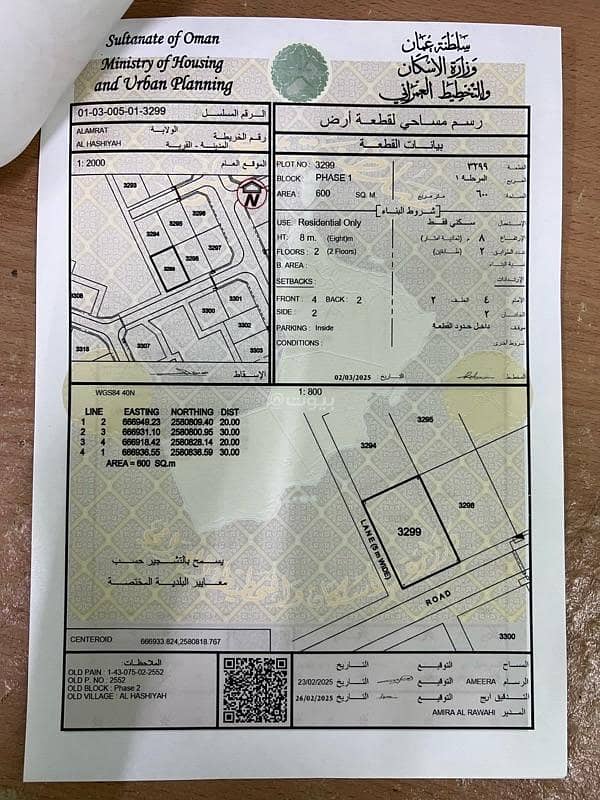 Sultanate of Oman
Ministry of Housing
and Urban Planning
سلطنة عمان
وزارة الإسكان
والتخطيط العمراني
01-03-005-01-3299 الرقم المسلسل
ALAMRAT الولاية
AL HASHIYAH المدينة - القرية
رقم الخريطة
رسم مساحي لقطعة أرض
بيانات القطعة
1: 2000 الموقع العام
N
3293
3294
3295
3296
3297
3298
3299
3300
3301
3302
3303
3307
3308
3318
الإسقاط
PLOT NO : 3299 ٣٢٩٩ القطعة
BLOCK PHASE 1 المرحلة ١ المربع
AREA : 600 SQ. M متر مربع ٦٠٠ المساحة
شروط البناء
USE: Residential Only سكني فقط الإستعمال
HT: 8 m. (Eight)m ٨ م (ثمانية امتار) الإرتفاع
FLOORS : 2 (2 Floors) ٢ (طابقان) عدد الطوابق
B. AREA : نسبة البناء
SETBACKS : الإرتدادات
FRONT : 4 BACK : 2 ٢ الخلف ٤ الأمام
SIDE : 2 ٢ الجانبان
PARKING : Inside داخل حدود القطعة موقف
CONDITIONS : شروط أخرى
02/03/2025 التاريخ المخطط
WGS84 40N
1: 800
LINE EASTING NORTHING DIST
1 2 666949.23 2580809.40 20.00
2 3 666931.10 2580800.95 30.00
3 4 666918.42 2580828.14 20.00
4 1 666936.55 2580836.59 30.00
AREA = 600 SQ.m
بيوت
3295
3294
3298
3299
LANE (5 m WIDE)
ROAD
3300
يسمح بالتشجير حسب
معايير البلدية المختصة
CENTEROID: 666933.824,2580818.767
الملاحظات
OLD PAIN : 1-43-075-02-2552
OLD P. NO : 2552
OLD BLOCK : Phase 2
OLD VILLAGE : AL HASHIYAH
التاريخ التوقيع المساح
23/02/2025 التاريخ التوقيع AMEERA الرسام
26/02/2025 التاريخ التوقيع التدقيق
AMIRA AL RAWAHI المدير